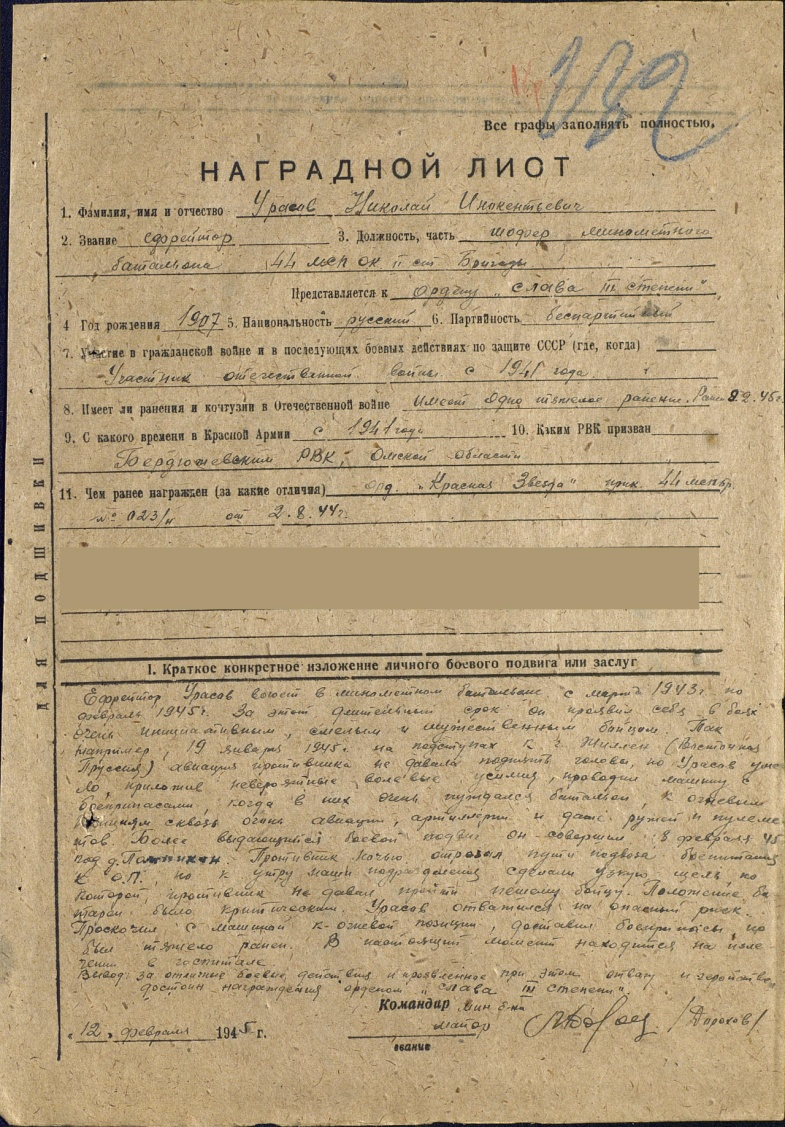 132
Все графы заполнять полностью.
НАГРАДНОЙ ЛИСТ
1. Фамилия, имя и отчество Урасов Николай Инокентьевич
2. Звание ефрейтор 3. Должность, часть шофер минометного
батальона 44 мсп ок II ст Бригады
Представляется к ордену „слава III степени"
4 Год рождения 1907 5. Национальность русский 6. Партийность беспартийный
7. Участие в гражданской войне и в последующих боевых действиях по защите СССР (где, когда)
Участник отечественной войны с 1941 года
8. Имеет ли ранения и контузии в Отечественной войне Имеет одно тяжелое ранение. Ранен 8.2.45г.
9. С какого времени в Красной Армии с 1941 года 10. Каким РВК призван
Бердюжевским РВК, Омской области
11. Чем ранее награжден (за какие отличия) орд. „Красная Звезда" прик. 44 мсбр.
№ 023/н от 2.8.44г.
ДЛЯ ПОДШИВКИ
I. Краткое конкретное изложение личного боевого подвига или заслуг
Ефрейтор Урасов воюет в минометном батальоне с марта 1943г. по
февраль 1945г. За этот длительный срок он проявил себя в боях
очень инициативным, смелым и мужественным бойцом. Так
например, 19 января 1945г. на подступах к г. Жиллен (Восточная
Пруссия) авиация противника не давала поднять головы, но Урасов уме
ло, приложив невероятные волевые усилия, проводил машину с
боеприпасами, когда в них очень нуждался батальон, к огневым
позициям сквозь огонь авиации, артиллерии и даже ружей и пулеме
тов. Более выдающийся боевой подвиг он совершил 8 февраля 45
под д. Противник ночью отрезал пути подвоза боепитания
к О.П., но к утру наши подразделения сделали узкую щель по
которой противник не давал пройти пешему бойцу. Положение ба
тареи было критическим. Урасов отважился на опасный риск.
Проскочил с машиной к огневой позиции, доставил боеприпасы, но
был тяжело ранен. В настоящий момент находится на изле
чении в госпитале.
Вывод: за отличные боевые действия и проявленное при этом отвагу и геройство
достоин награждения орденом „Слава III степени".
Командир мин б-на
майор /Дорохов/
звание
„12„ февраля 1945 г.